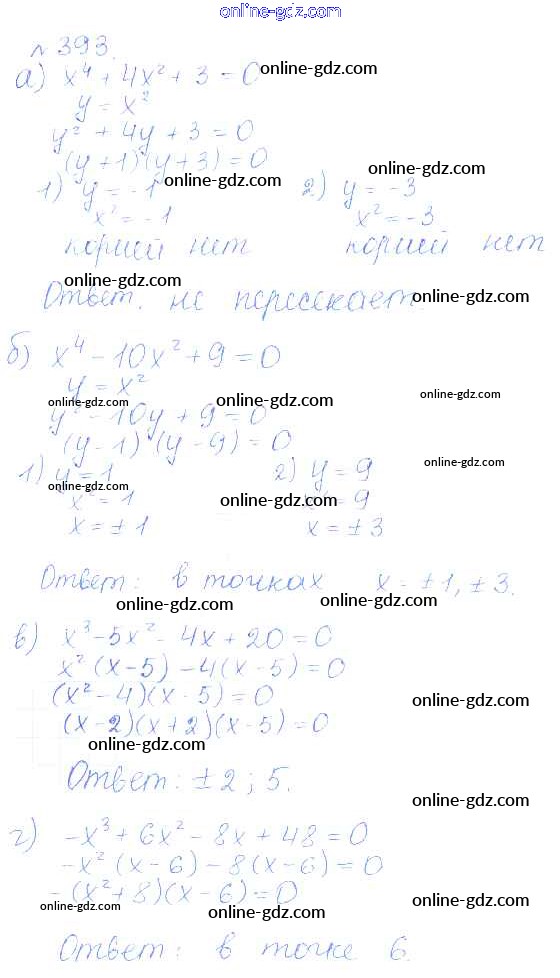 online-gdz.com
№393.
а) x⁴ + 4x² + 3 = 0 online-gdz.com
y = x²
y² + 4y + 3 = 0
(y+1)(y+3) = 0
online-gdz.com
1) y = -1 online-gdz.com 2) y = -3
x² = -1 x² = -3
корней нет корней нет
online-gdz.com
Ответ. не пересекает. online-gdz.com
б) x⁴ - 10x² + 9 = 0
y = x²
online-gdz.com online-gdz.com online-gdz.com
y² - 10y + 9 = 0
(y-1)(y-9) = 0
1) y = 1 2) y = 9 online-gdz.com
online-gdz.com
x² = 1 online-gdz.com = 9
x = ±1 x = ±3
Ответ: в точках x = ±1, ±3.
online-gdz.com online-gdz.com
в) x³ - 5x² - 4x + 20 = 0
x²(x-5) - 4(x-5) = 0
(x²-4)(x-5) = 0 online-gdz.com
(x-2)(x+2)(x-5) = 0
online-gdz.com
Ответ: ±2; 5.
online-gdz.com
г) -x³ + 6x² - 8x + 48 = 0
-x²(x-6) - 8(x-6) = 0
-(x²+8)(x-6) = 0
online-gdz.com online-gdz.com online-gdz.com
Ответ: в точке 6.